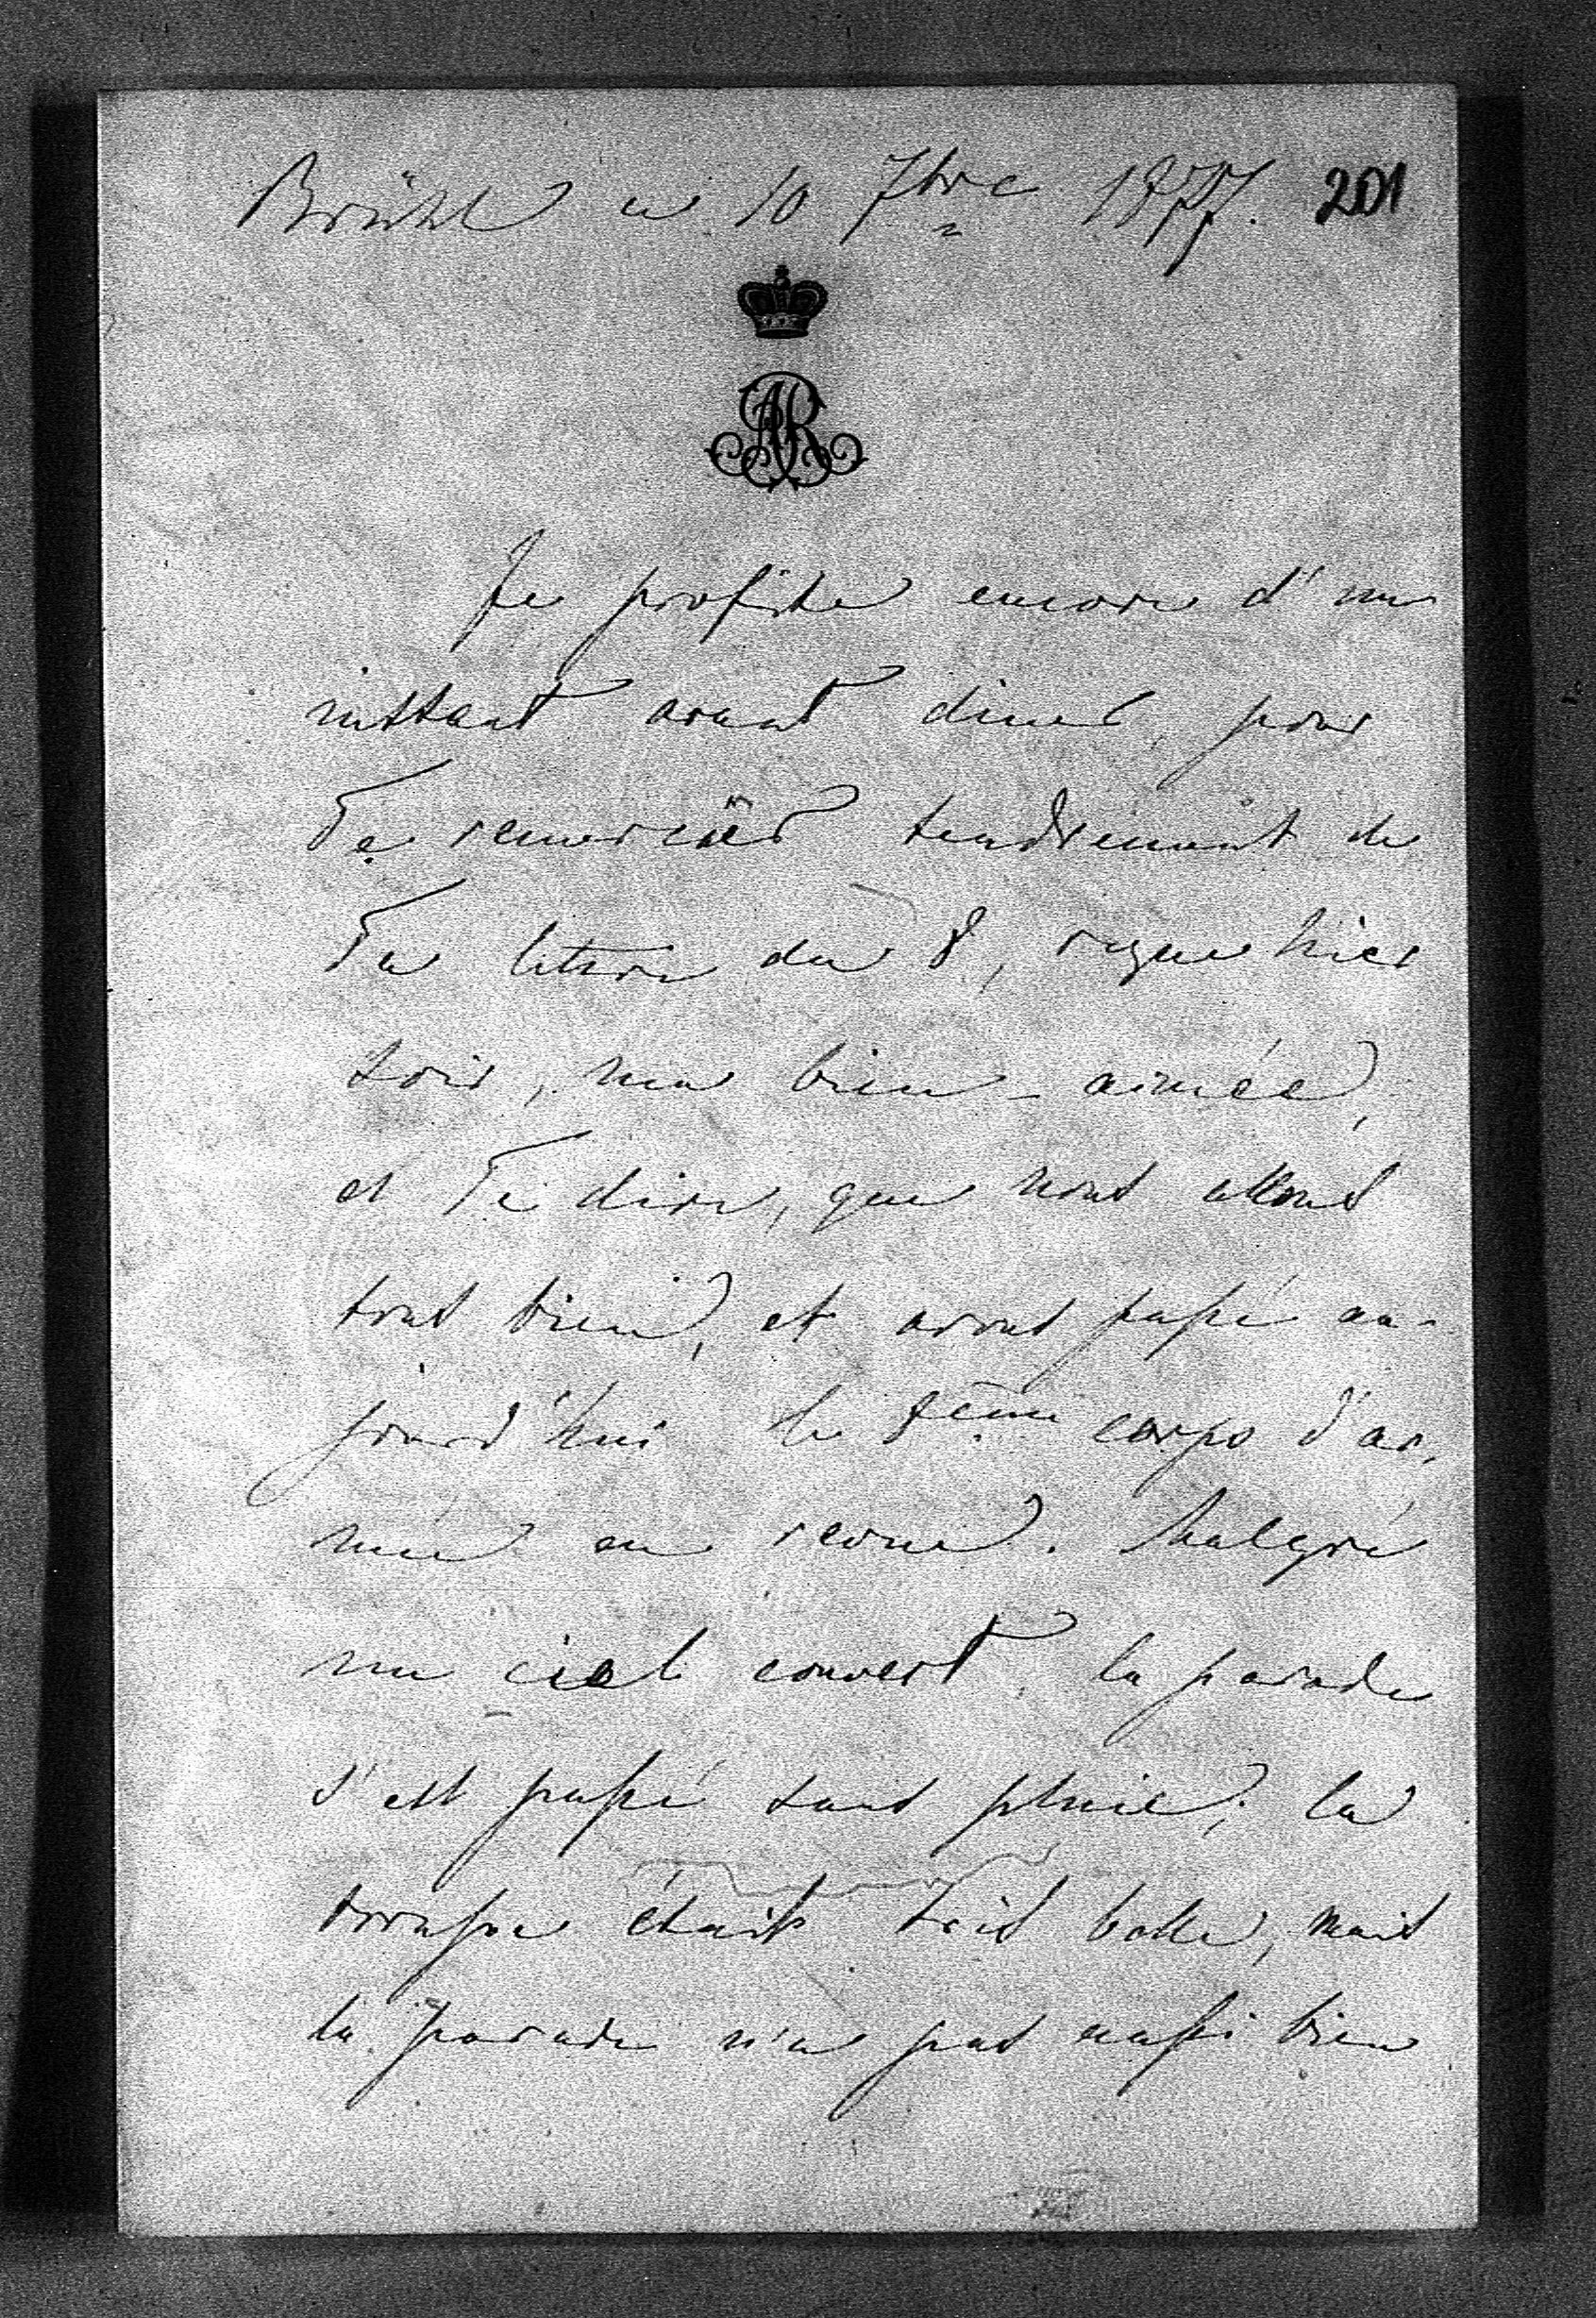 Brühl ce 10 7bre 1877. 201
AR
Je profite encore d'un
instant avant diner, pour
Te remercier tendrement de
Ta lettre du 8, reçue hier
soir, ma bien-aimée,
et Te dire, que nous allons
tous bien, et avons passé au-
jourd'hui le 8ème corps d'ar-
mée en revue. Malgré
un ciel couvert, la parade
s'est passé sans pluie; la
troupe était très belle, mais
la parade n'a pas aussi bien